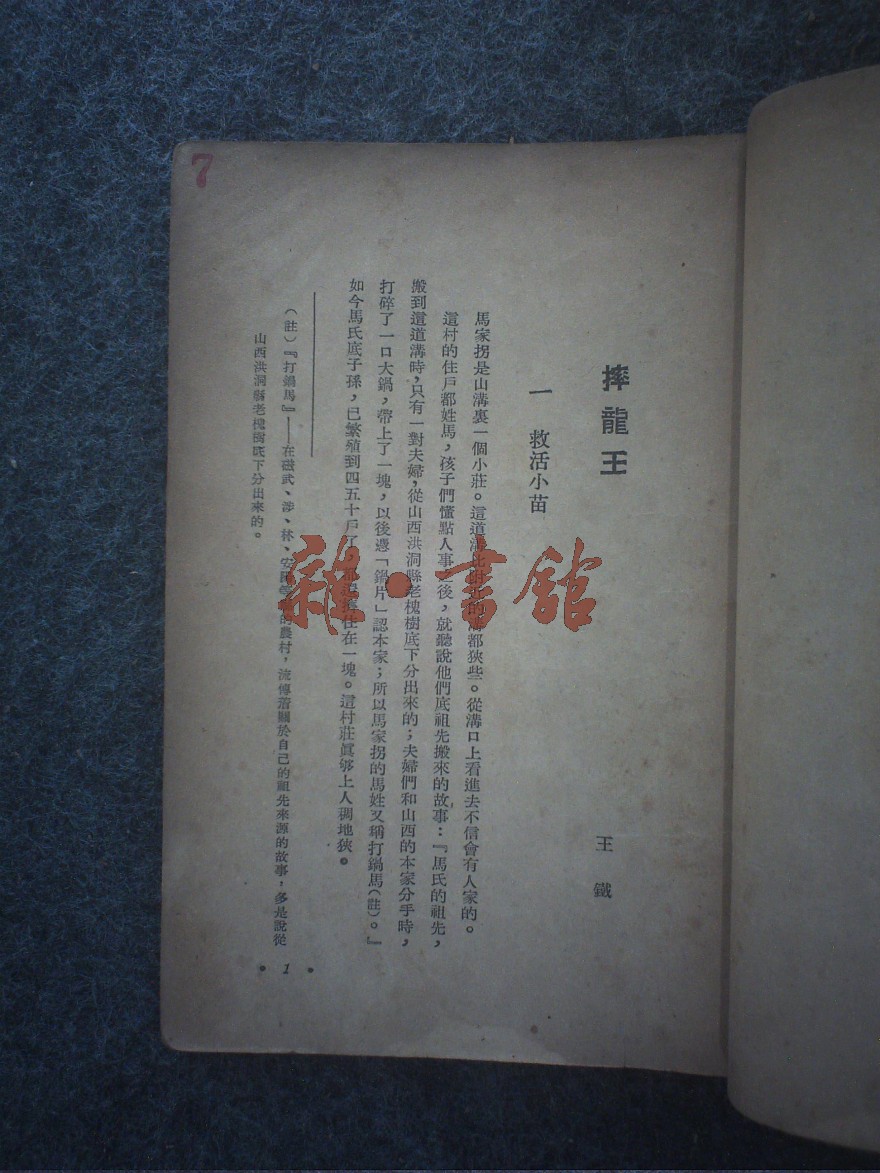 摔龍王
王鐵
一 救活小苗
馬家拐是山溝裏一個小莊。這道溝比附近的溝都狹些。從溝口上看進去不信會有人家的。
這村的住戶都姓馬,孩子們懂點人事以後,就聽說他們底祖先搬來的故事:『馬氏的祖先,
搬到這道溝時,只有一對夫婦,從山西洪洞縣老槐樹底下分出來的;夫婦們和山西的本家分手時,
打碎了一口大鍋,帶上了一塊,以後憑「鍋片」認本家;所以馬家拐的馬姓又稱打鍋馬(註)。』
如今馬氏底子孫,已繁殖到四五十戶了,住在一塊。這村莊真够上人稠地狹。
(註)『打鍋馬』——在磁武、涉、林、安的農村,流傳着關於自己的祖先來源的故事,多是說從
山西洪洞縣老槐樹底下分出來的。
• 1 •
7
雜·書館